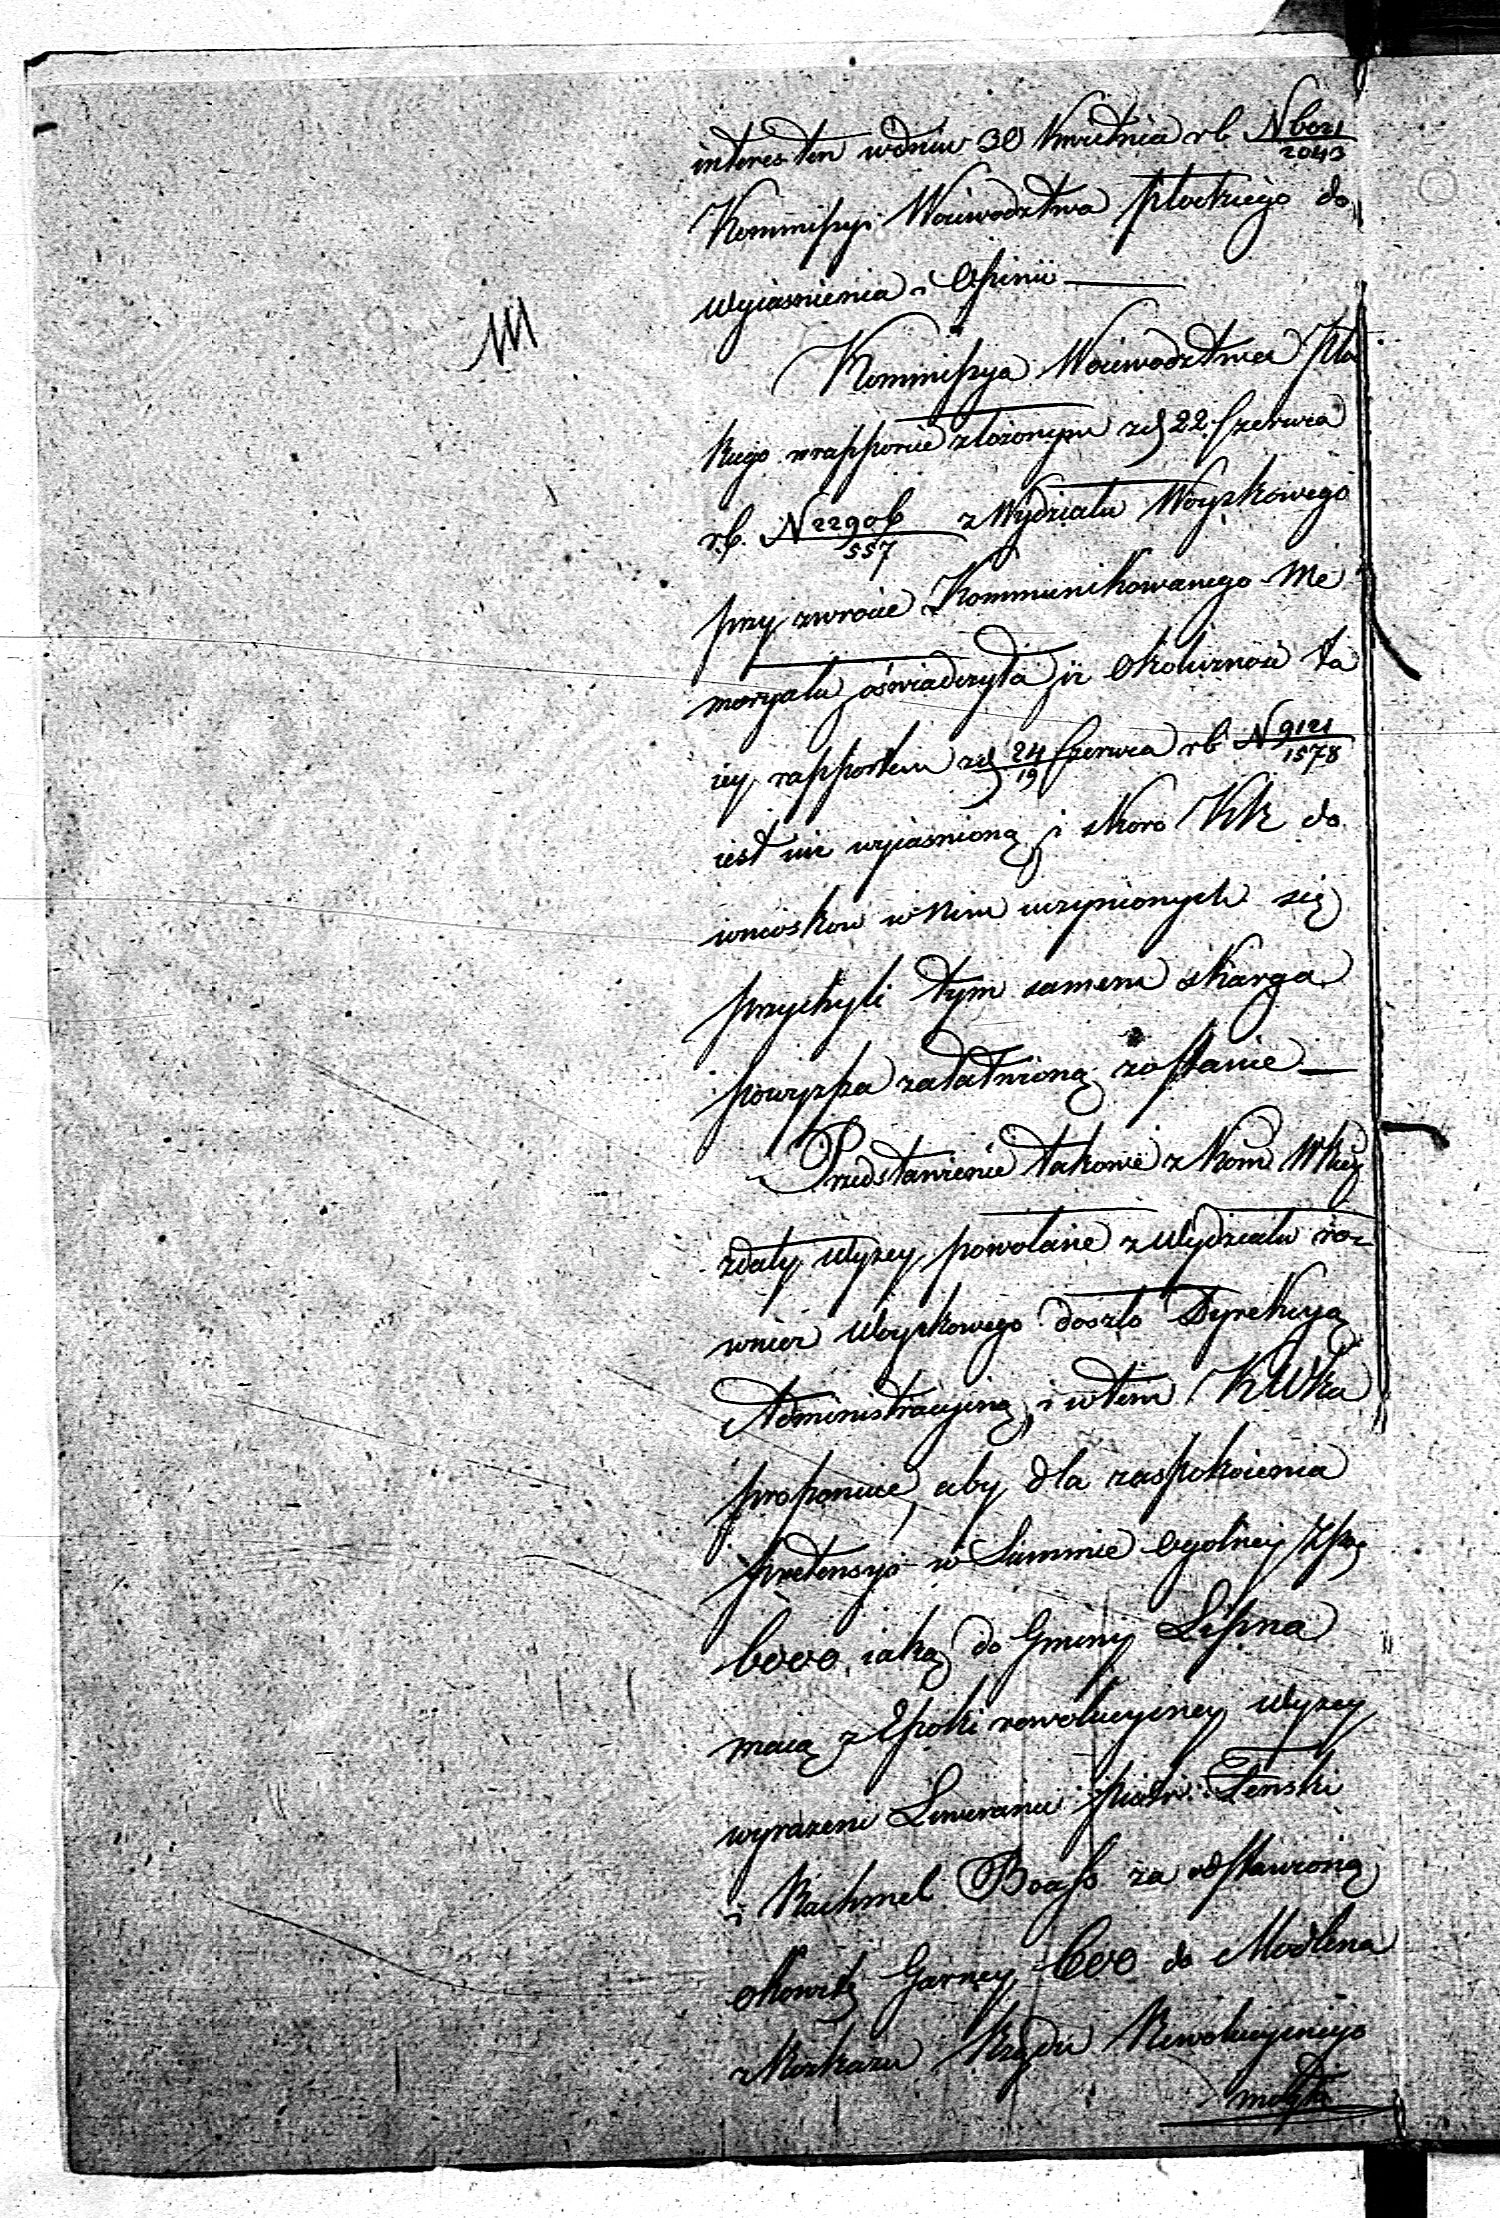 interes ten w dniu 30 Kwietnia r b N 6021/2043
Kommissyi Woiewodztwa Płockiego do
wyiasnienia i Opinii
Kommissya Woiewodztwa Pło
kiego w rapporcie złożonym z d 22 Czerwca
r. b. N 22906/557 z Wydziału Woyskowego
przy zwrocie Kommunikowanego Me
moryału oświadczyła iż Okoliczność ta
iey rapportem z d 24/19 Czerwca r b N 9121/1578
iest iuż wyiasnioną i skoro KR do
wniosków w Nim uczynionych się
przychyli tym samem skarga
powyższa załatwioną zostanie
Przedstawienie takowe z Kom Wkiey
z daty wyżey powołane z Wydziału ró
wnież Woyskowego doszło Dyrekcyą
Administracyiną i w tem KWka
proponuie, aby dla zaspokoienia
pretensyi w Summie ogólney Złp
6000 iaką do Gminy Lipna
maią z Epoki rewolucyiney wyżey
wyrażeni Piotr Zenski
i Rachmel Boass za odstawioną
okowitę Garncy 600 do Modlina
z Rozkazu Rządu Rewolucyinego